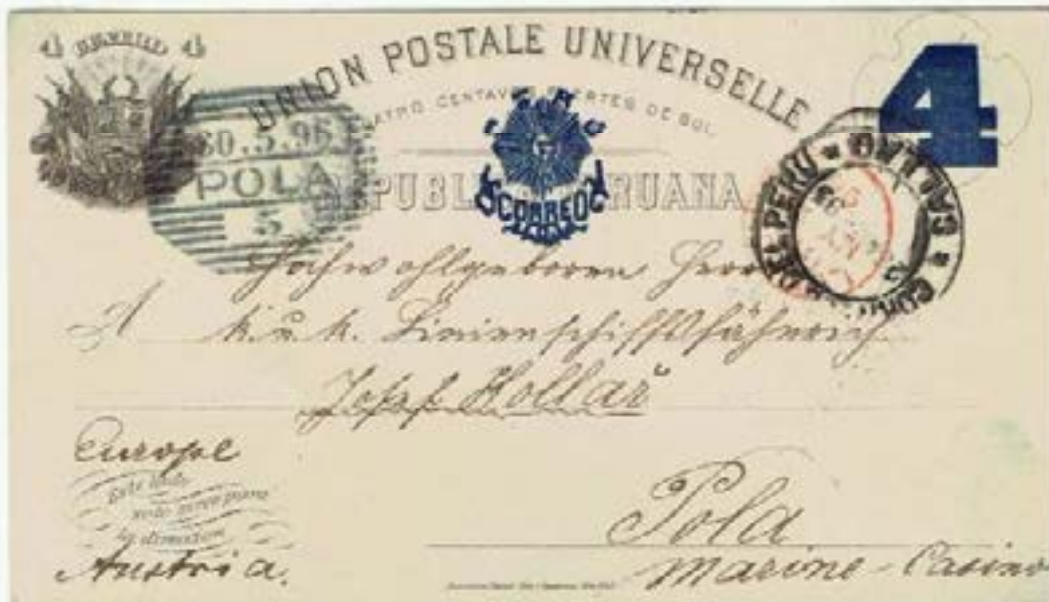 4 4
UNION POSTALE UNIVERSELLE
4
CENTAVOS FUERTES DE SOL
30.5.96
POLA
5
REPUBLICA PERUANA
CORREOS
LIMA
DEL PERU * CALLAO *
Hochwohlgeboren Herrn
A k.u.k. Linienschiffsfähnrich
Josef Kollař
Europe
Este lado
solo sirve para
la direccion
Austria.
Pola
Marine-Casino